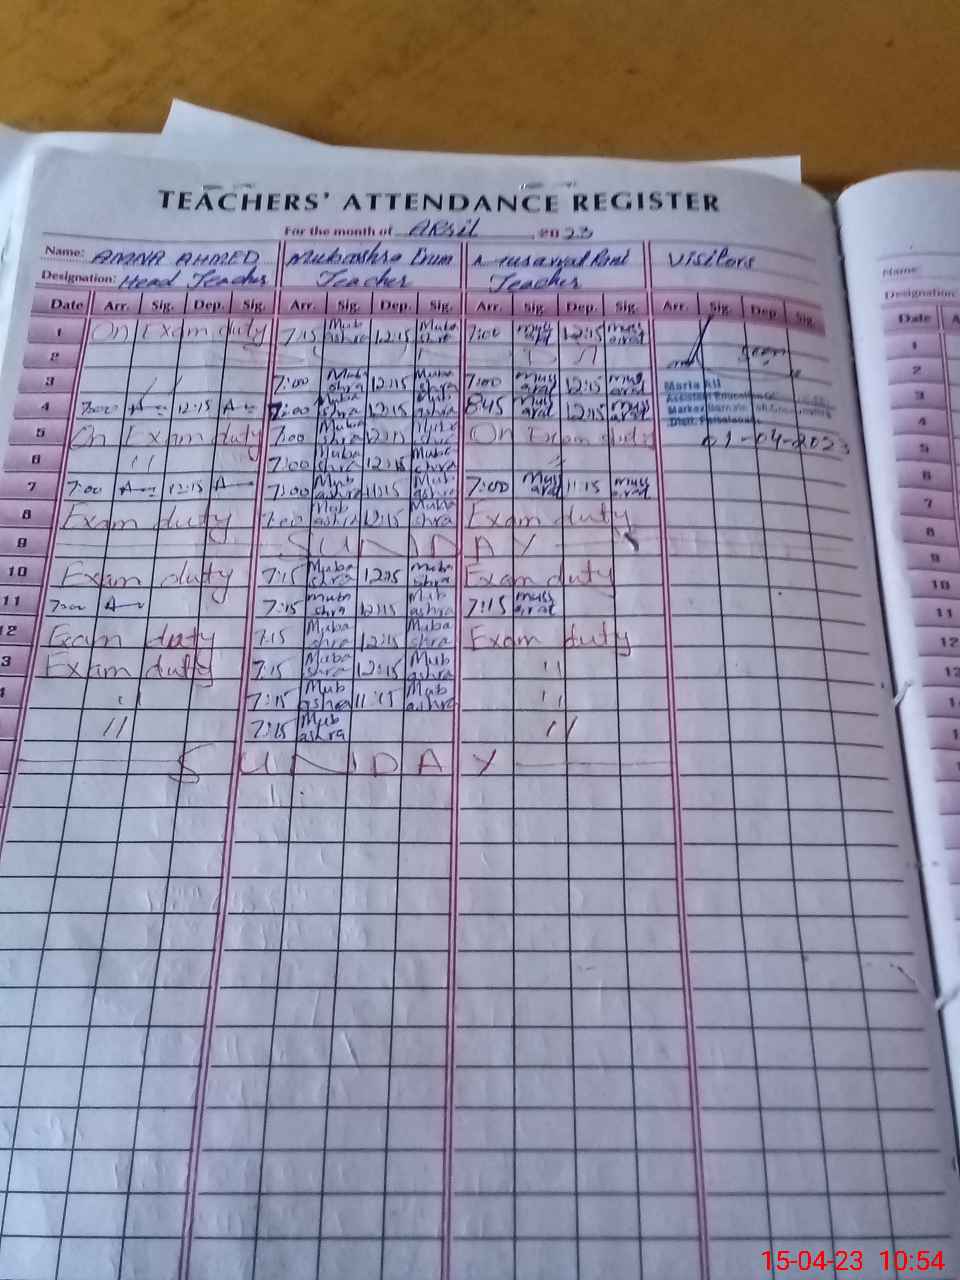 TEACHERS' ATTENDANCE REGISTER
For the month of April 2023
Name: AMNA AHMED Mubashra Erum Musarrat Rani Visitors
Designation: Head Teacher Teacher Teacher
Date Arr. Sig. Dep. Sig. Arr. Sig. Dep. Sig. Arr. Sig. Dep. Sig. Arr. Sig. Dep. Sig.
1 On Exam duty 7:15 Mubashra 12:15 Mubashra 7:00 mussarat 12:15 mussarat
2 Seen
3 // 7:00 Mubashra 12:15 Mubashra 7:00 mussarat 12:15 mussarat Maria Ali
4 7:00 A 12:15 A 7:00 Mubashra 12:15 Mubashra 6:45 mussarat 12:15 mussarat
5 On Exam duty 7:00 Mubashra 12:15 Mubashra On Exam duty 01-04-2023
6 // 7:00 Mubashra 12:15 Mubashra //
7 7:00 A 12:15 A 7:00 Mubashra 11:15 Mubashra 7:00 mussarat 11:15 mussarat
8 Exam duty 7:00 Mubashra 12:15 Mubashra Exam duty
9 SUNDAY
10 Exam duty 7:15 Mubashra 12:15 Mubashra Exam duty
11 7:00 A 7:15 Mubashra 12:15 Mubashra 7:15 mussarat
12 Exam duty 7:15 Mubashra 12:15 Mubashra Exam duty
3 Exam duty 7:15 Mubashra 12:15 Mubashra //
// 7:15 Mubashra 11:15 Mubashra //
// 7:15 Mubashra //
SUNDAY
Name:
Designation
Date A
1
2
3
4
5
6
7
8
9
10
11
12
15-04-23 10:54